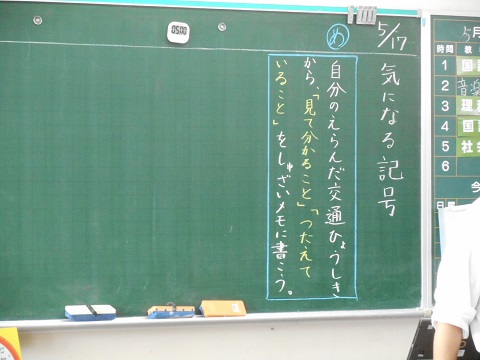 5/17
気になる記号
め
自分のえらんだ交通ひょうしき
から、「見て分かること」「つたえて
いること」をしゅざいメモに書こう。
05:00
5月
時間
1 国
2 音楽
3 理
4 国
5 社会
6
今